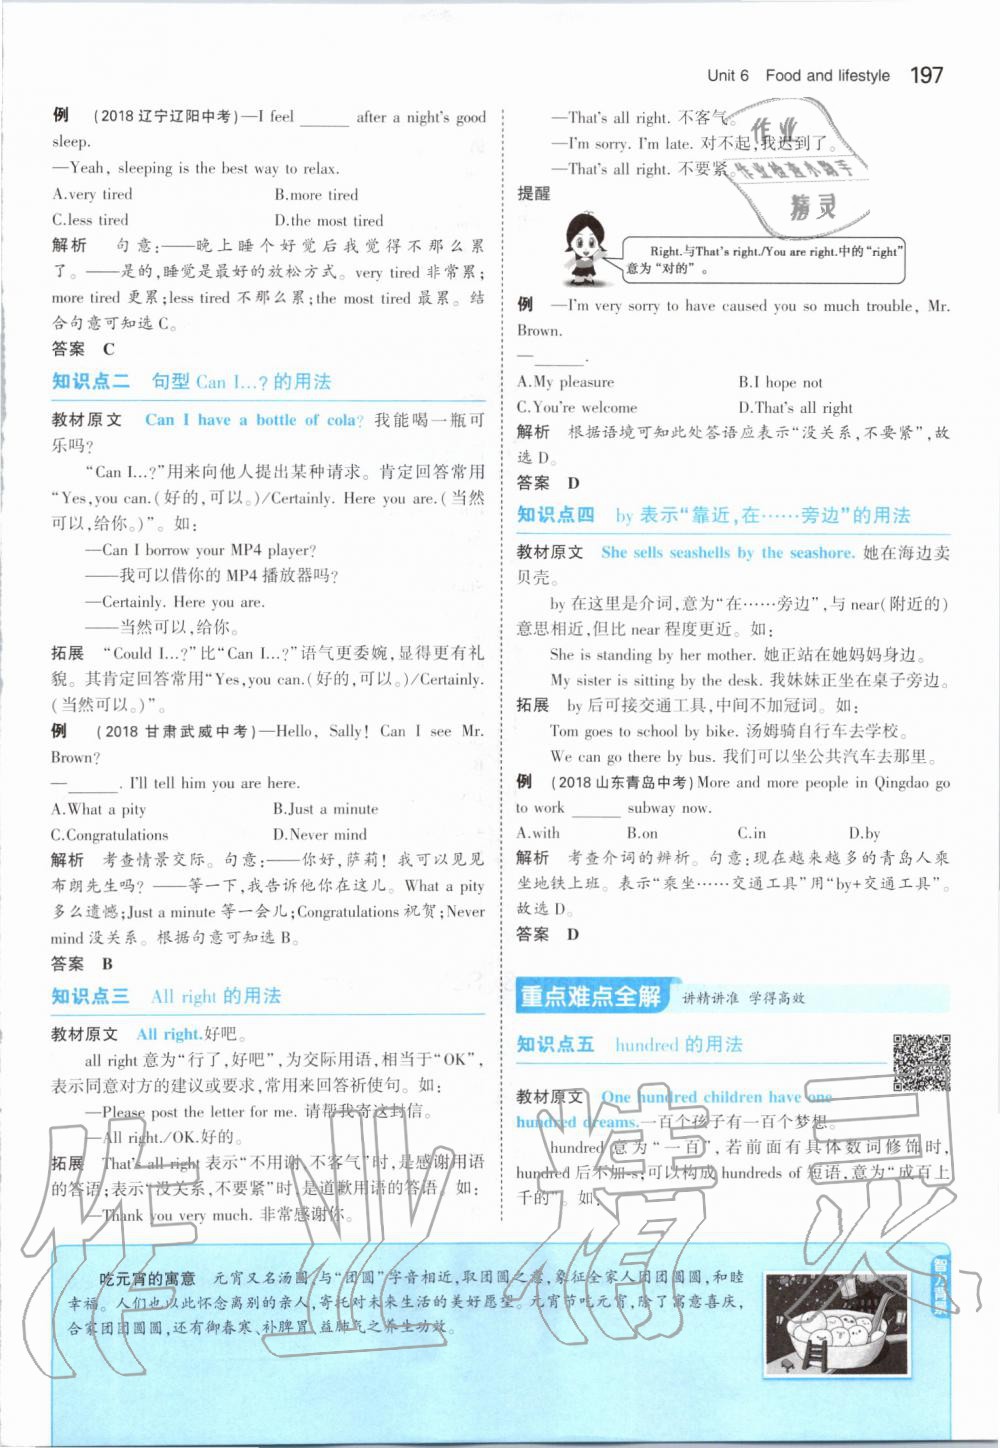 Unit 6 Food and lifestyle 197
例 (2018辽宁辽阳中考)—I feel ______ after a night's good
sleep.
—Yeah, sleeping is the best way to relax.
A.very tired B.more tired
C.less tired D.the most tired
解析 句意:——晚上睡个好觉后我觉得不那么累
了。——是的,睡觉是最好的放松方式。very tired 非常累;
more tired 更累;less tired 不那么累;the most tired 最累。结
合句意可知选C。
答案 C
知识点二 句型 Can I…? 的用法
教材原文 Can I have a bottle of cola? 我能喝一瓶可
乐吗?
“Can I…?”用来向他人提出某种请求。肯定回答常用
“Yes,you can.(好的,可以。)/Certainly. Here you are.(当然
可以,给你。)”。如:
—Can I borrow your MP4 player?
——我可以借你的 MP4 播放器吗?
—Certainly. Here you are.
——当然可以,给你。
拓展 “Could I…?”比“Can I…?”语气更委婉,显得更有礼
貌。其肯定回答常用“Yes,you can.(好的,可以。)/Certainly.
(当然可以。)”。
例 (2018甘肃武威中考)—Hello, Sally! Can I see Mr.
Brown?
—______. I'll tell him you are here.
A.What a pity B.Just a minute
C.Congratulations D.Never mind
解析 考查情景交际。句意:——你好,萨莉!我可以见见
布朗先生吗?——等一下,我告诉他你在这儿。What a pity
多么遗憾;Just a minute 等一会儿;Congratulations 祝贺;Never
mind 没关系。根据句意可知选B。
答案 B
知识点三 All right 的用法
教材原文 All right.好吧。
all right 意为“行了,好吧”,为交际用语,相当于“OK”,
表示同意对方的建议或要求,常用来回答祈使句。如:
—Please post the letter for me. 请帮我寄这封信。
—All right./OK.好的。
拓展 That's all right 表示“不用谢,不客气”时,是感谢用语
的答语;表示“没关系,不要紧”时,是道歉用语的答语。如:
—Thank you very much. 非常感谢你。
—That's all right. 不客气。
—I'm sorry. I'm late. 对不起,我迟到了。
—That's all right. 不要紧。
提醒
Right.与That's right./You are right.中的“right”
意为“对的”。
例 —I'm very sorry to have caused you so much trouble, Mr.
Brown.
—______.
A.My pleasure B.I hope not
C.You're welcome D.That's all right
解析 根据语境可知此处答语应表示“没关系,不要紧”,故
选D。
答案 D
知识点四 by 表示“靠近,在……旁边”的用法
教材原文 She sells seashells by the seashore. 她在海边卖
贝壳。
by 在这里是介词,意为“在……旁边”,与 near(附近的)
意思相近,但比 near 程度更近。如:
She is standing by her mother. 她正站在她妈妈身边。
My sister is sitting by the desk. 我妹妹正坐在桌子旁边。
拓展 by 后可接交通工具,中间不加冠词。如:
Tom goes to school by bike. 汤姆骑自行车去学校。
We can go there by bus. 我们可以坐公共汽车去那里。
例 (2018山东青岛中考)More and more people in Qingdao go
to work ______ subway now.
A.with B.on C.in D.by
解析 考查介词的辨析。句意:现在越来越多的青岛人乘
坐地铁上班。表示“乘坐……交通工具”用“by+交通工具”。
故选D。
答案 D
重点难点全解 讲精讲准 学得高效
知识点五 hundred 的用法
教材原文 One hundred children have one
hundred dreams.一百个孩子有一百个梦想。
hundred 意为“一百”,若前面有具体数词修饰时,
hundred 后不加-s;可以构成 hundreds of 短语,意为“成百上
千的”。如:
吃元宵的寓意 元宵又名汤圆,与“团圆”字音相近,取团圆之意,象征全家人团团圆圆,和睦
幸福。人们也以此怀念离别的亲人,寄托对未来生活的美好愿望。元宵节吃元宵,除了寓意喜庆,
合家团团圆圆,还有御春寒、补脾胃、益肺气之养生功效。
作业
作业检查小助手
精灵
作业精灵